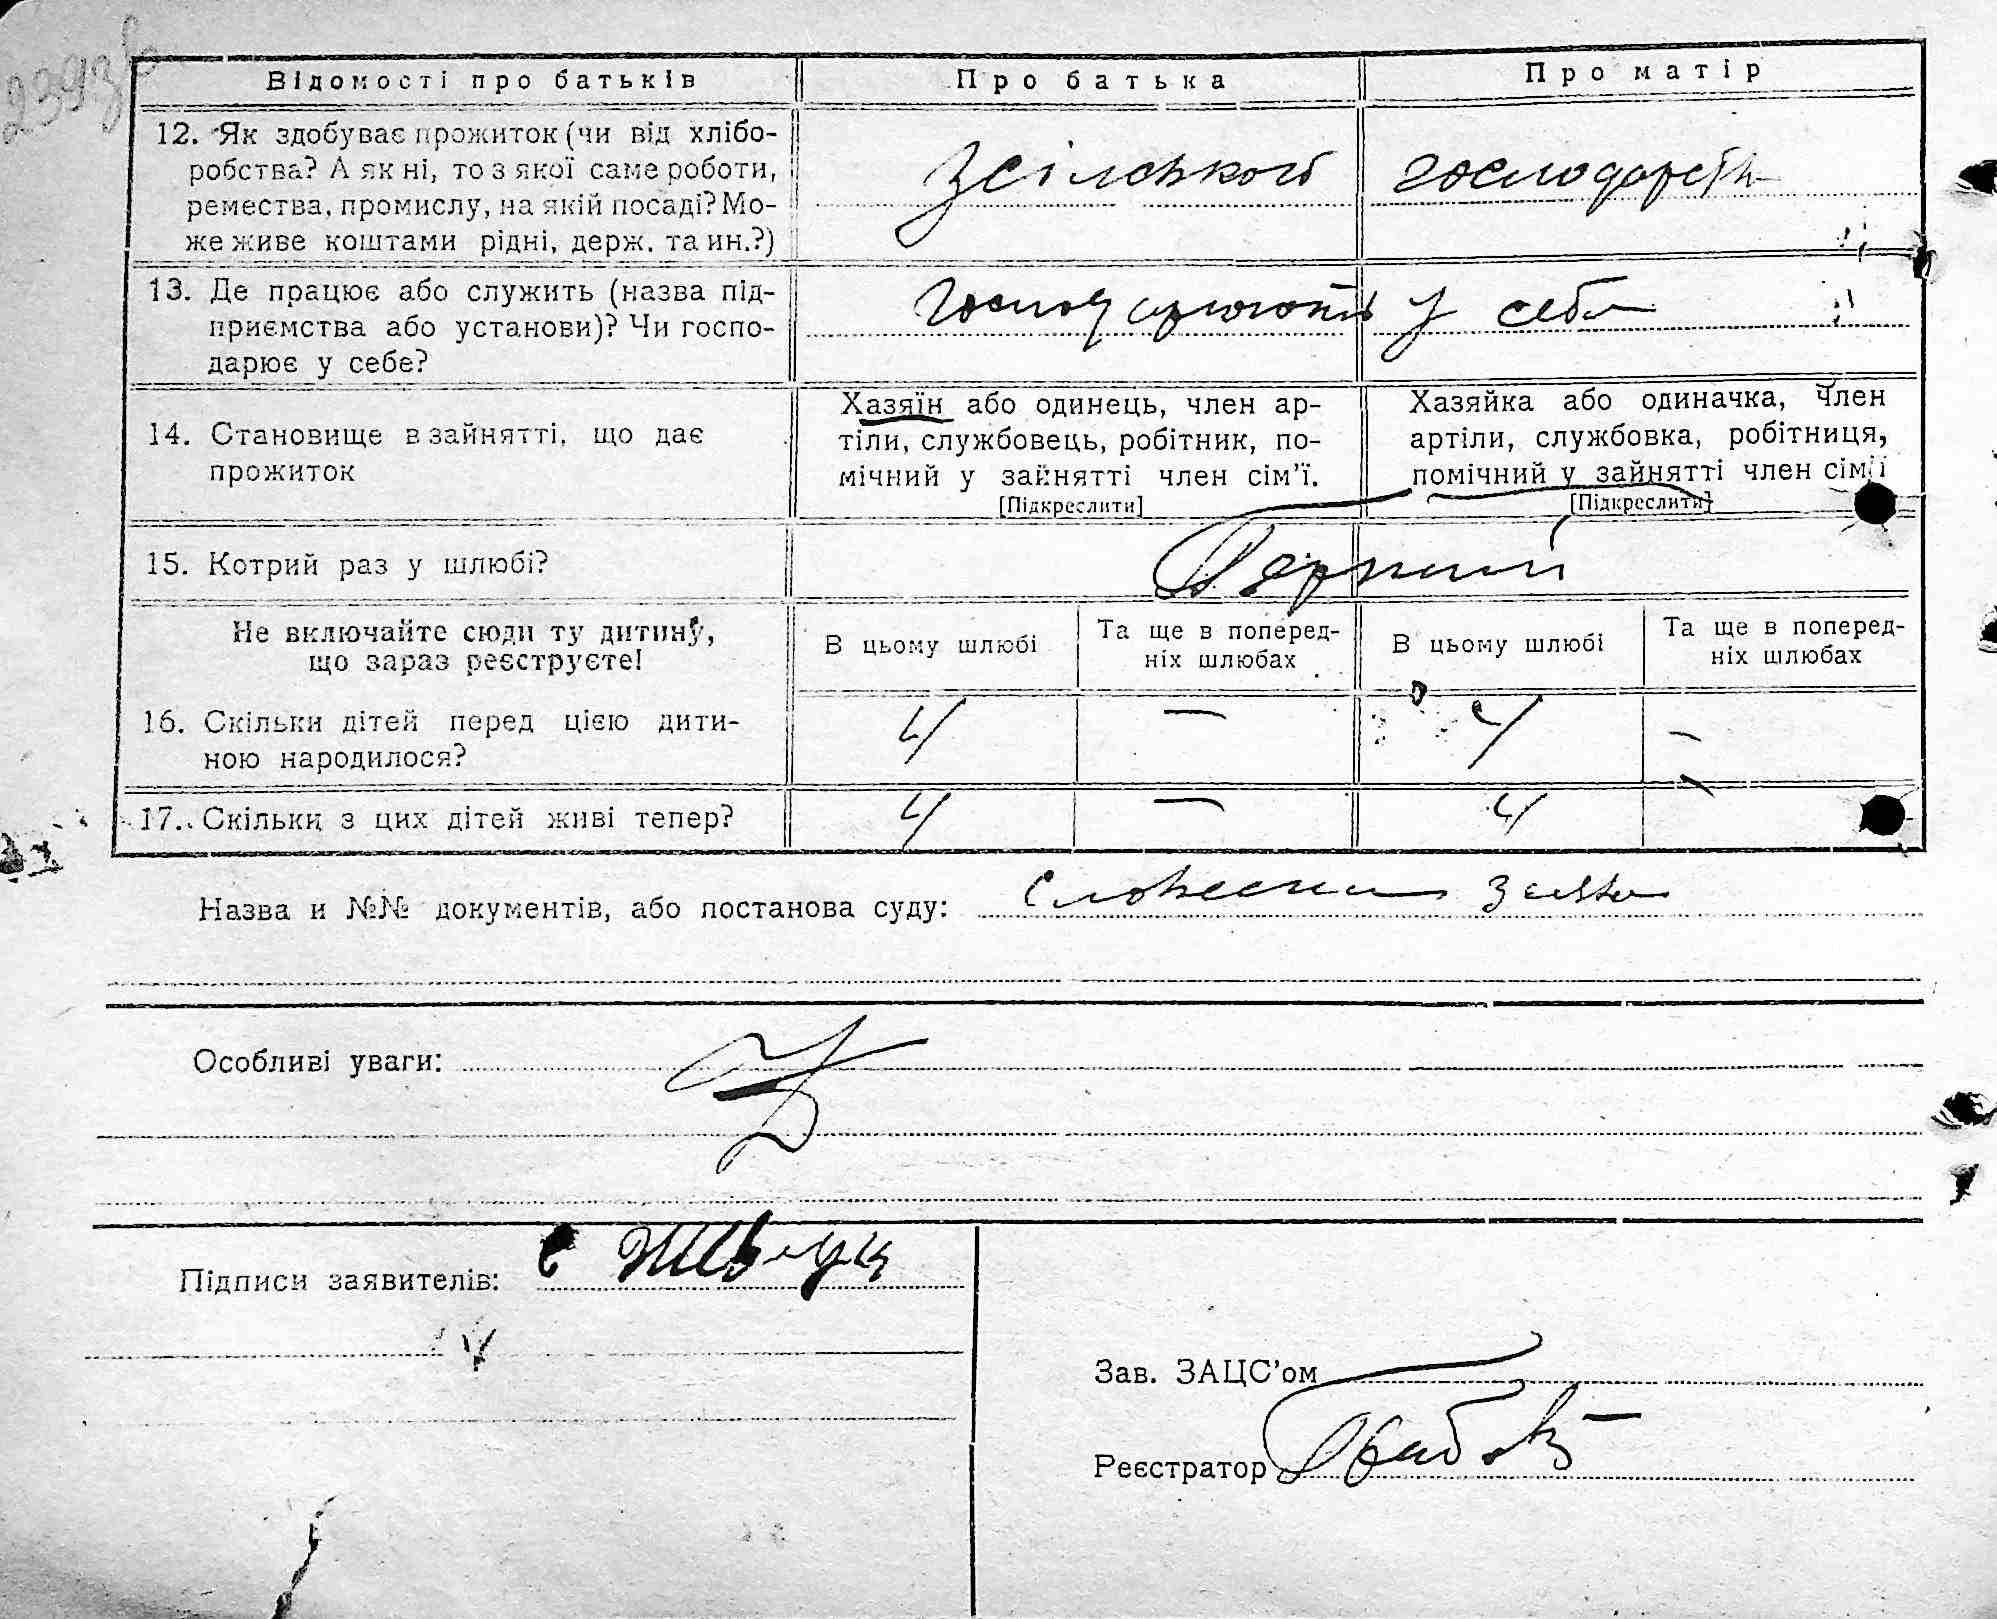 2393
Відомості про батьків Про батька Про матір
12. Як здобуває прожиток (чи від хлібо-
робства? А як ні, то з якої саме роботи,
ремества, промислу, на якій посаді? Мо-
же живе коштами рідні, держ. та ин.?)
Зсільського господарства
13. Де працює або служить (назва під-
приємства або установи)? Чи госпо-
дарює у себе?
Господарюють у себе
14. Становище в зайнятті, що дає
прожиток
Хазяїн або одинець, член ар-
тіли, службовець, робітник, по-
мічний у зайнятті член сім'ї.
[Підкреслити]
Хазяйка або одиначка, член
артіли, службовка, робітниця,
помічний у зайнятті член сім'ї
[Підкреслити]
15. Котрий раз у шлюбі?
Перший
Не включайте сюди ту дитину,
що зараз реєструєте!
В цьому шлюбі
Та ще в поперед-
ніх шлюбах
В цьому шлюбі
Та ще в поперед-
ніх шлюбах
16. Скільки дітей перед цією дити-
ною народилося?
4 — 4 —
17. Скільки з цих дітей живі тепер? 4 — 4 —
Назва и №№ документів, або постанова суду: Словесна заява
Особливі уваги:
Підписи заявителів:
Зав. ЗАЦС'ом
Реєстратор